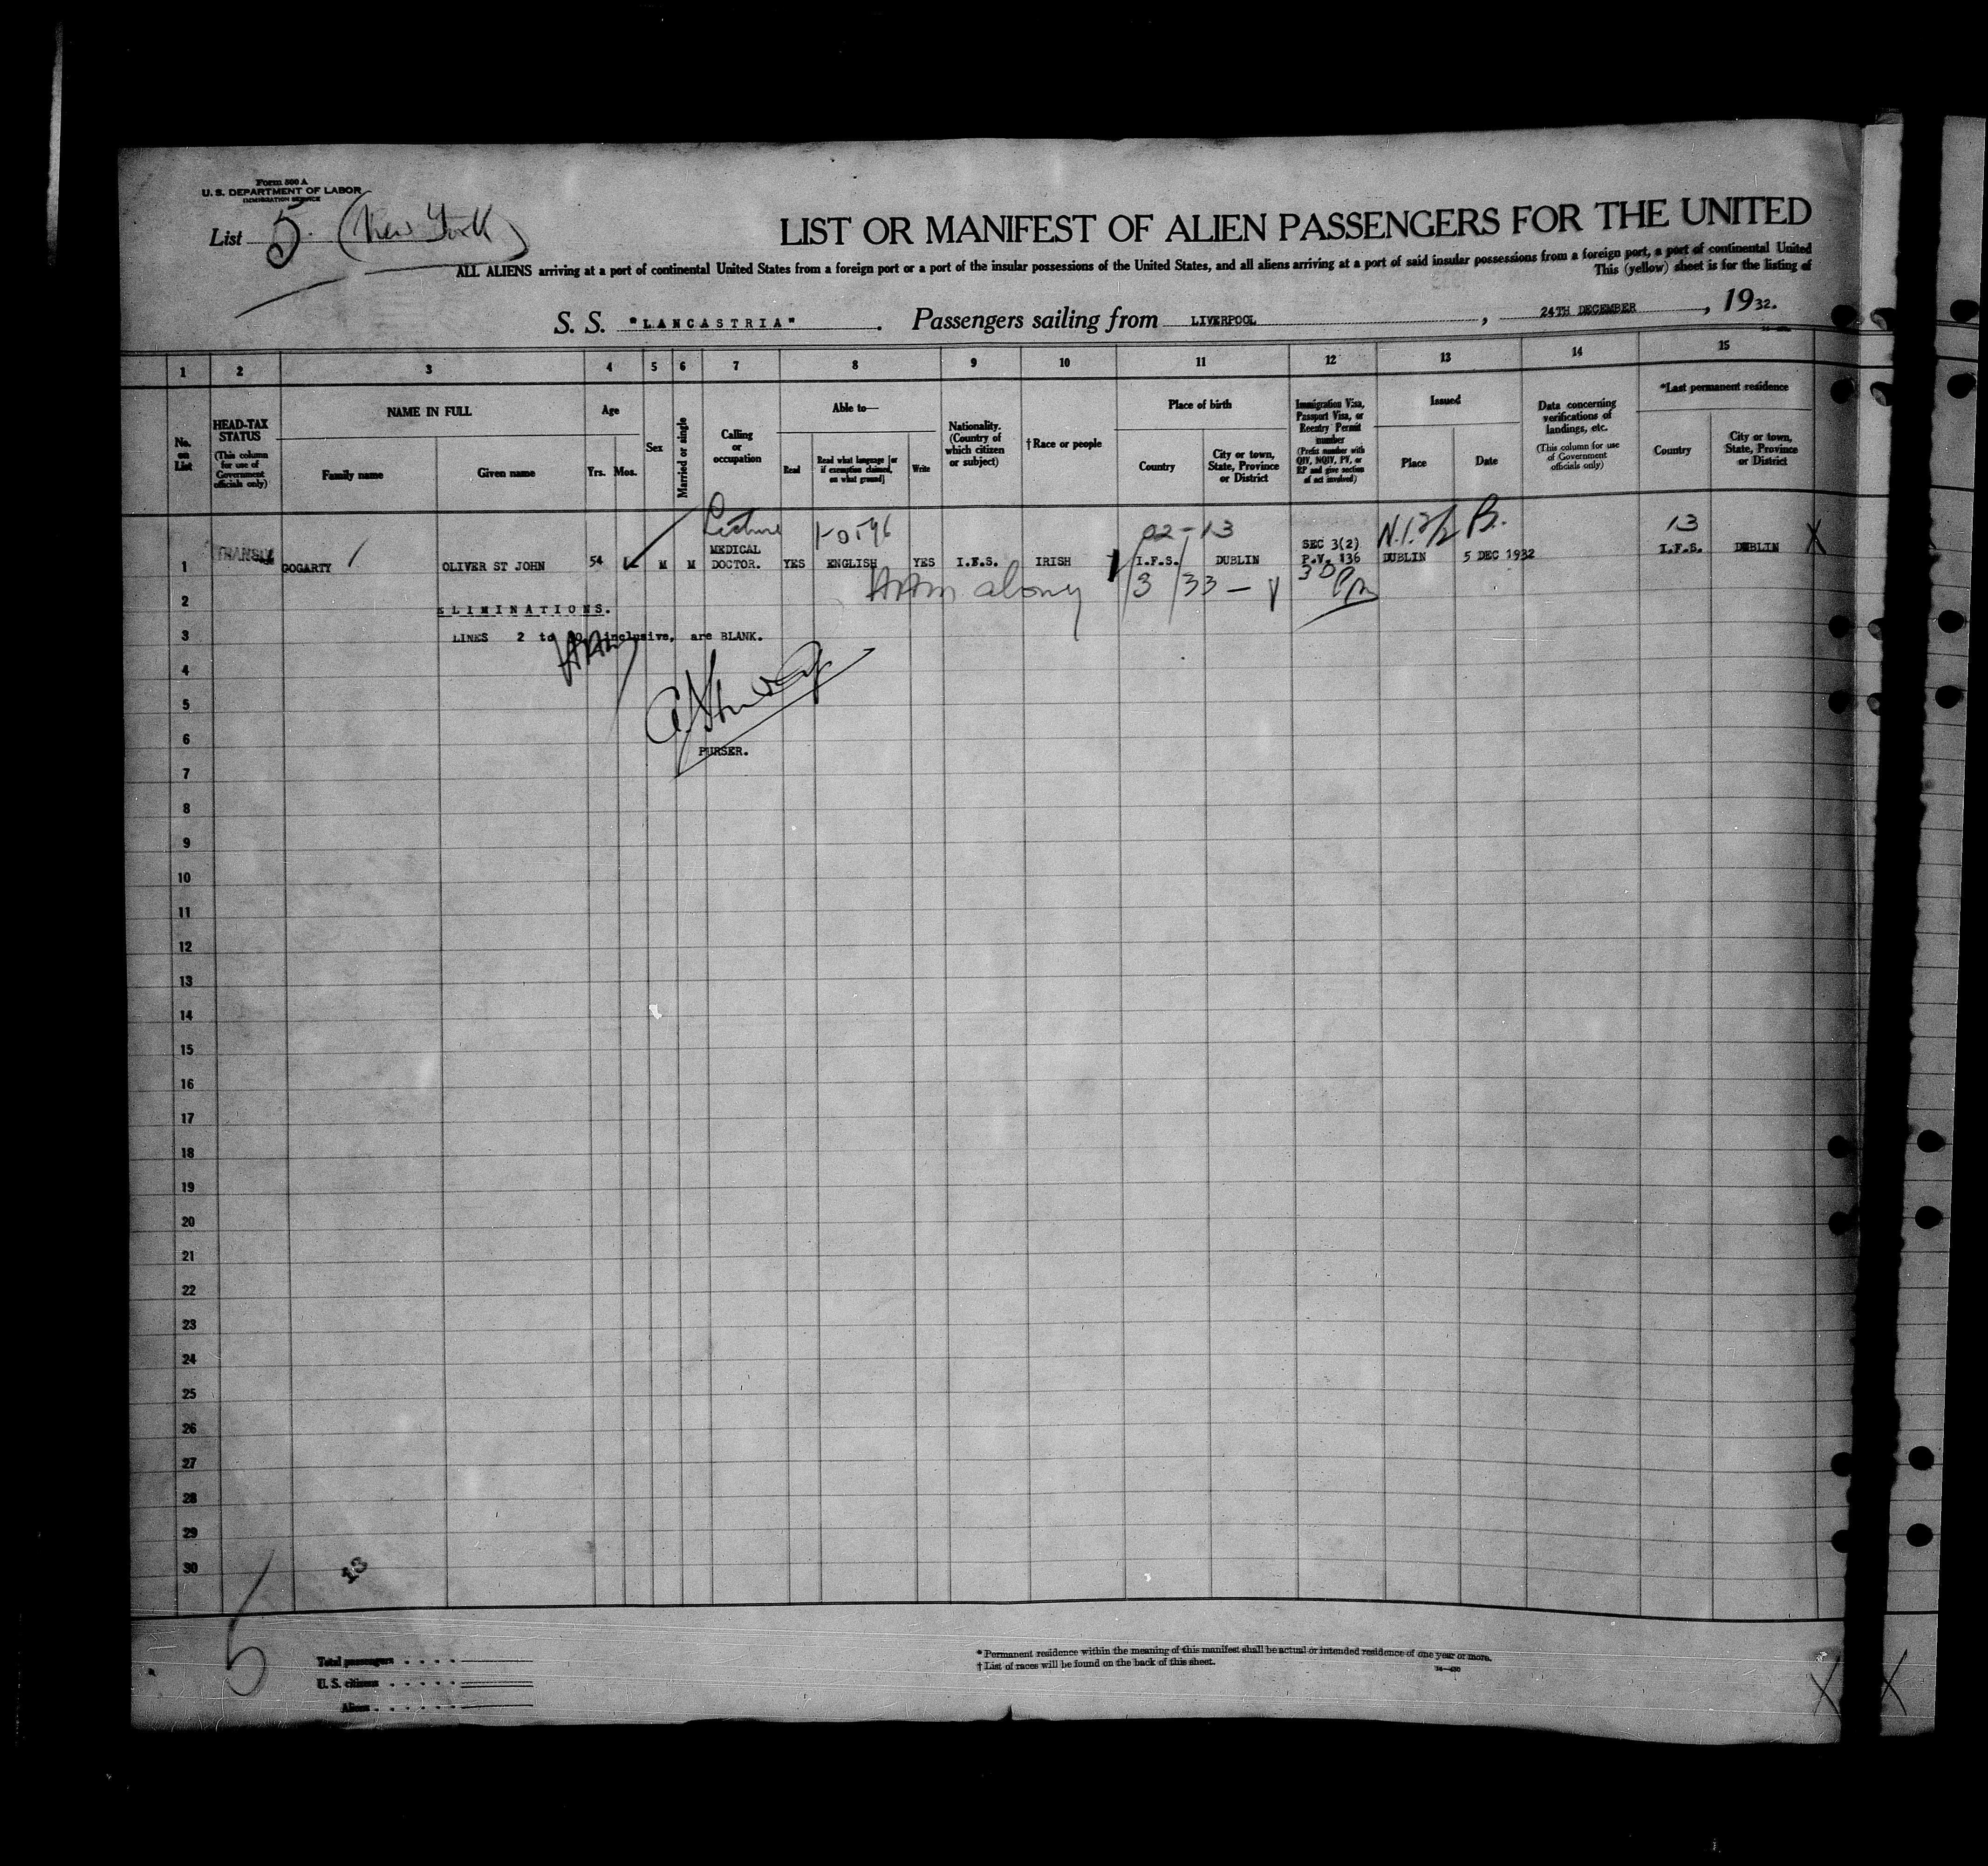 Form 500 A
U. S. DEPARTMENT OF LABOR
IMMIGRATION SERVICE
List 5. (New York)
LIST OR MANIFEST OF ALIEN PASSENGERS FOR THE UNITED
ALL ALIENS arriving at a port of continental United States from a foreign port or a port of the insular possessions of the United States, and all aliens arriving at a port of said insular possessions from a foreign port, a port of continental United
This (yellow) sheet is for the listing of
S. S. "LANCASTRIA" . Passengers sailing from LIVERPOOL , 24TH DECEMBER , 1932.
1 2 3 4 5 6 7 8 9 10 11 12 13 14 15
No. on List
HEAD-TAX STATUS
(This column for use of Government officials only)
NAME IN FULL
Family name
Given name
Age
Yrs. Mos.
Sex
Married or single
Calling or occupation
Able to—
Read
Read what language [or if exemption claimed, on what ground]
Write
Nationality. (Country of which citizen or subject)
† Race or people
Place of birth
Country
City or town, State, Province or District
Immigration Visa, Passport Visa, or Reentry Permit number
(Prefix number with QIV, NQIV, PV, or RP and give section of act involved)
Issued
Place
Date
Data concerning verifications of landings, etc.
(This column for use of Government officials only)
*Last permanent residence
Country
City or town, State, Province or District
02-13
13
1 GOGARTY OLIVER ST JOHN 54 M M MEDICAL DOCTOR. YES ENGLISH YES I.F.S. IRISH I.F.S. DUBLIN SEC 3(2) P.V. 136 DUBLIN 5 DEC 1932 I.F.S. DUBLIN X
1/3/33
2 ELIMINATIONS.
3 LINES 2 to inclusive, are BLANK.
4
5
6
PURSER.
7
8
9
10
11
12
13
14
15
16
17
18
19
20
21
22
23
24
25
26
27
28
29
30
13
5
Total passengers
U. S. citizens
Aliens
* Permanent residence within the meaning of this manifest shall be actual or intended residence of one year or more.
† List of races will be found on the back of this sheet.
X X